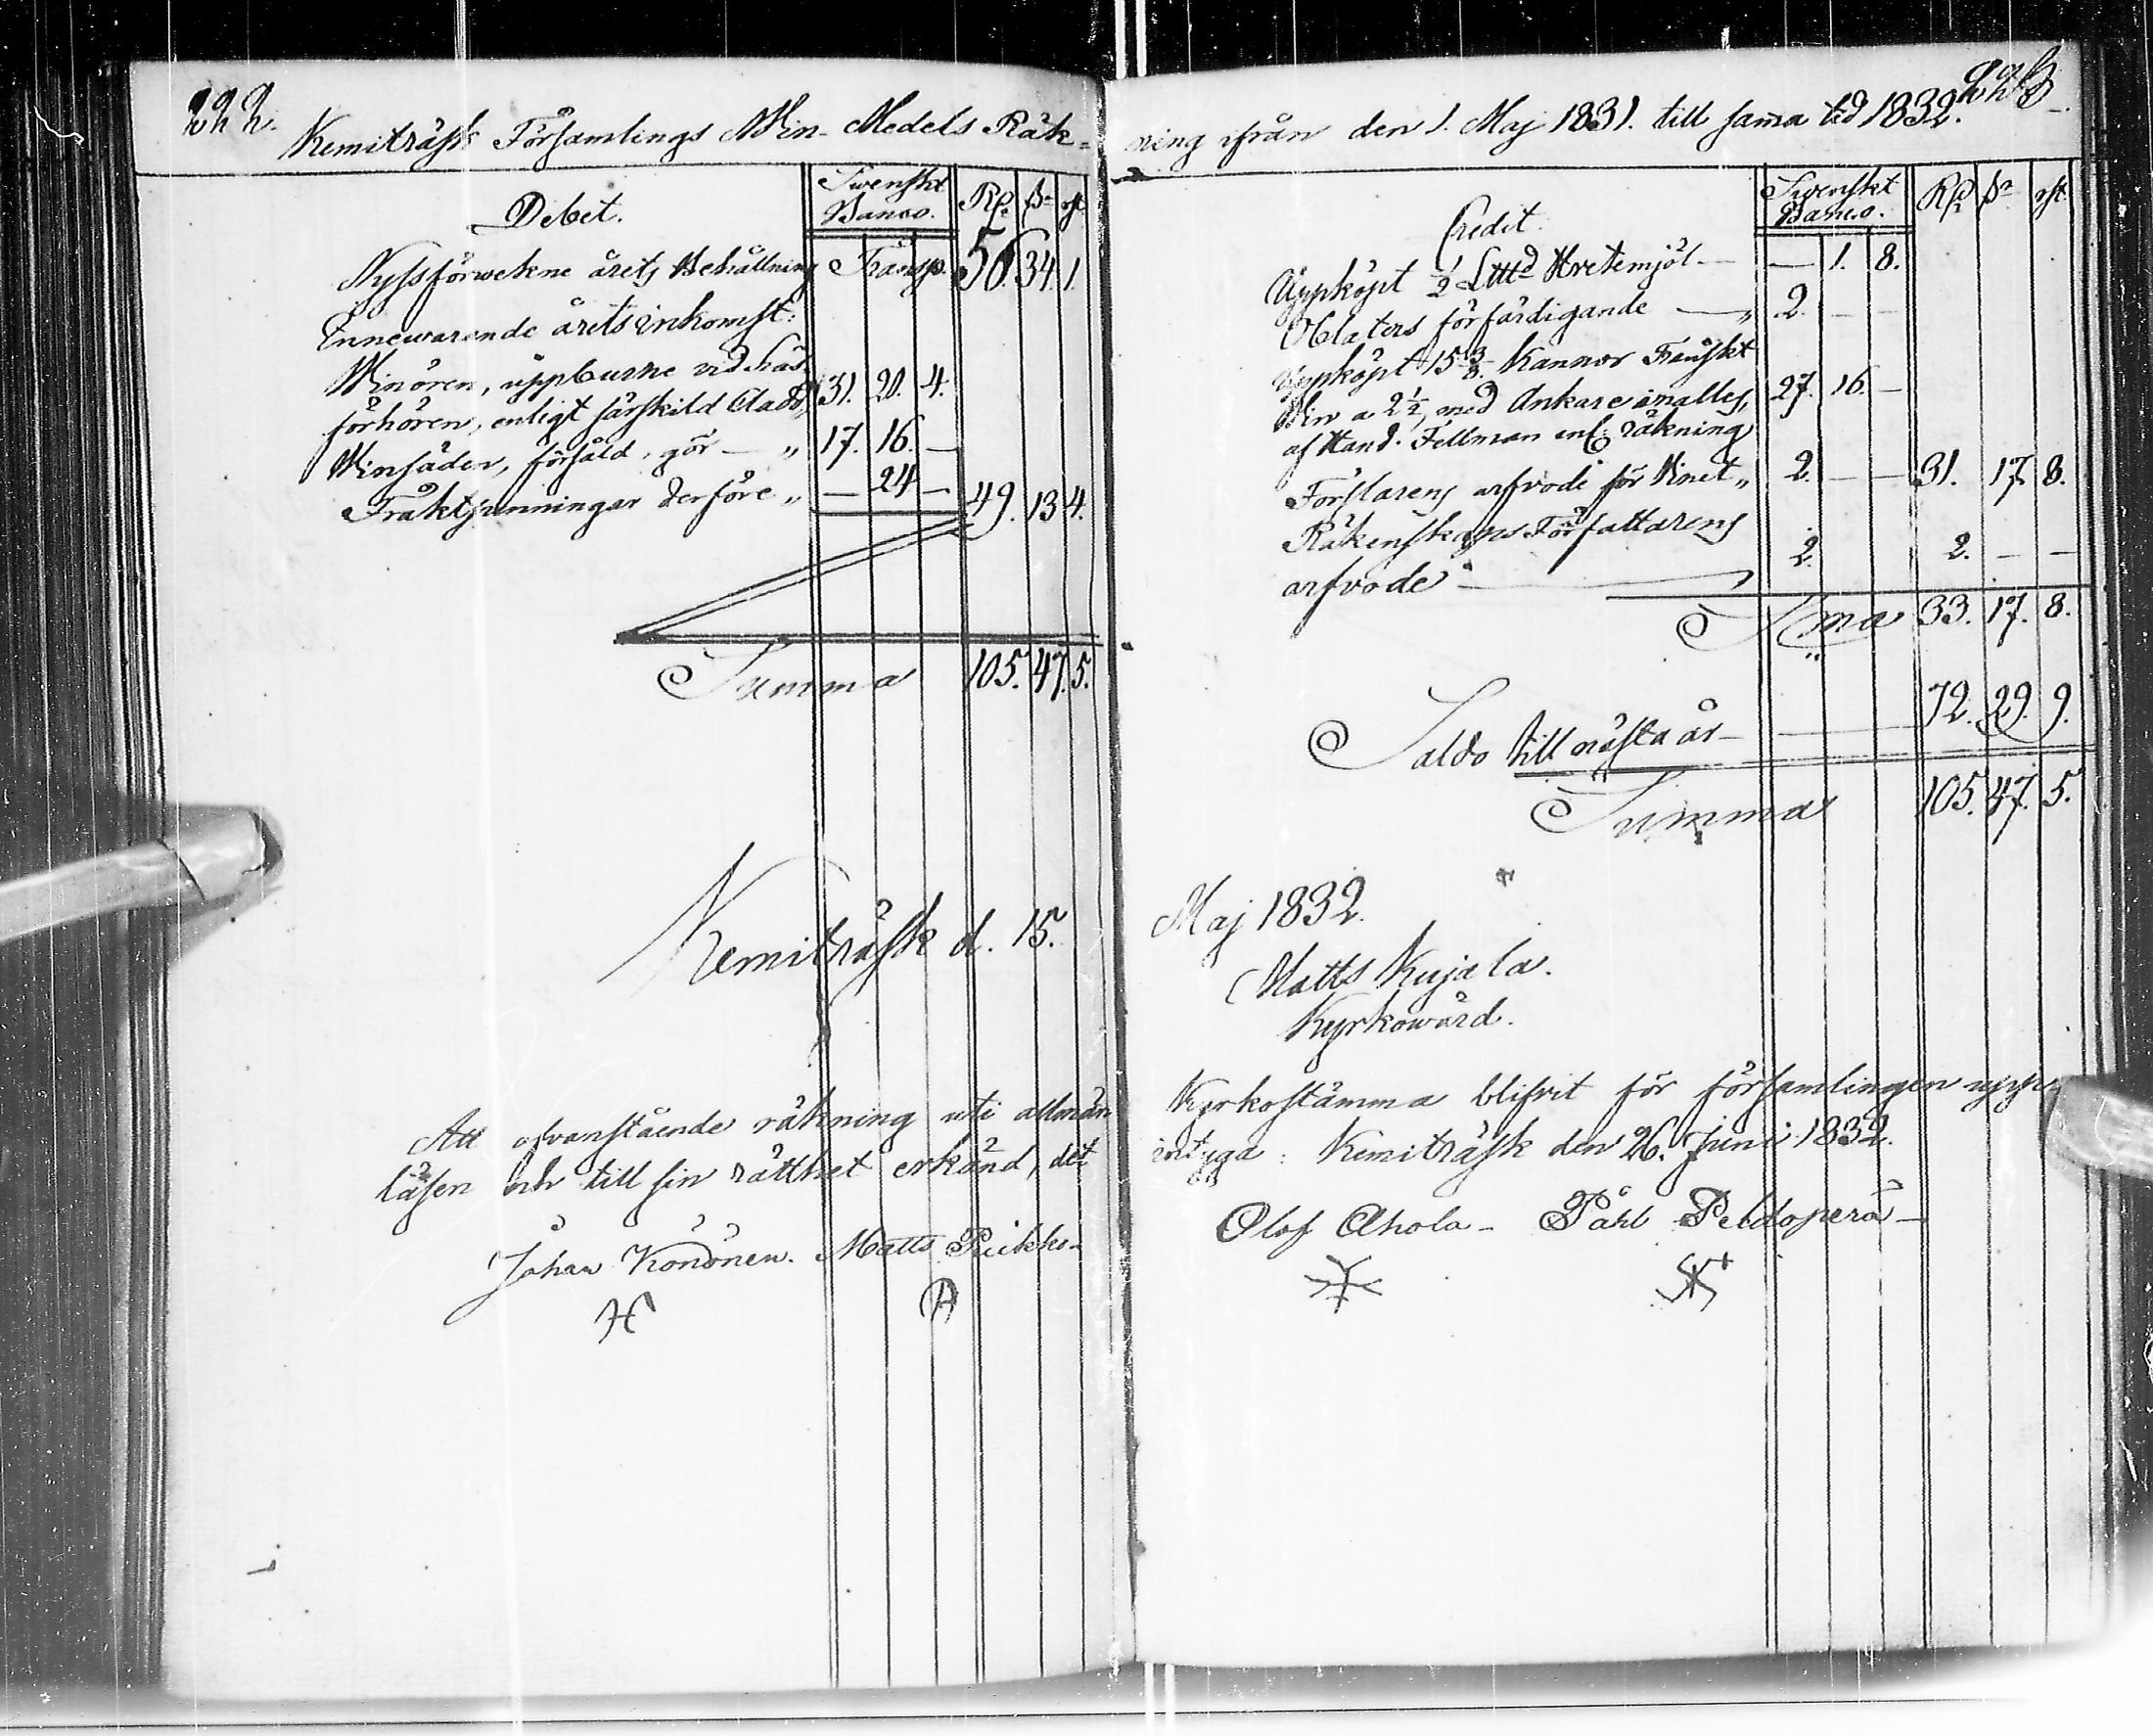 222.
Kemiträsk Församlings Win-Medels Räk-
Debet.
Swenskt Banco. Rd. ß. rst.
Nyssförwekne årets Behållning Transp. 56. 34. 1.
Innewarande årets inkomst:
Winören, uppburne vid Läs-
förhören, enligt särskild Cladd, 31. 20. 4.
Winsäden, försåld, gör — „ 17. 16. —
Fraktpenningar derföre „ — 24 — 49. 13 4.
Summa 105. 47. 5.
Kemiträsk d. 15.
Att ofvanstående räkning uti allmän
läsen och till sin rätthet erkänd, det
Johan Kondnen. Matts Puikko-
H A
223.
ning ifrån den 1. Maj 1831. till sama tid 1832.
Credit.
Swenskt Banco. Rd. ß. rst.
Uppköpt ½ L℔d Hvetemjöl — — 1. 8.
Oblaters förfärdigande — „ 2. — —
Uppköpt 15 3/8 Kannor Franskt
Win a 2½, med Ankare inalles, 27. 16. —
af Hand. Fellman enl: räkning
Förslarens arfvode för Vinet „ 2. — — 31. 17. 8.
Räkenskaps Författarens
arfvode — 2. 2. — —
Sma 33. 17. 8.
Saldo till nästa år — 72. 29. 9.
Summa 105. 47. 5.
Maj 1832.
Matts Kujala.
Kyrkowärd.
Kyrkostämma blifvit för församlingen upp
intyga: Kemiträsk den 26. Juni 1832.
Olof Ahola — Påhl Peldoperä —